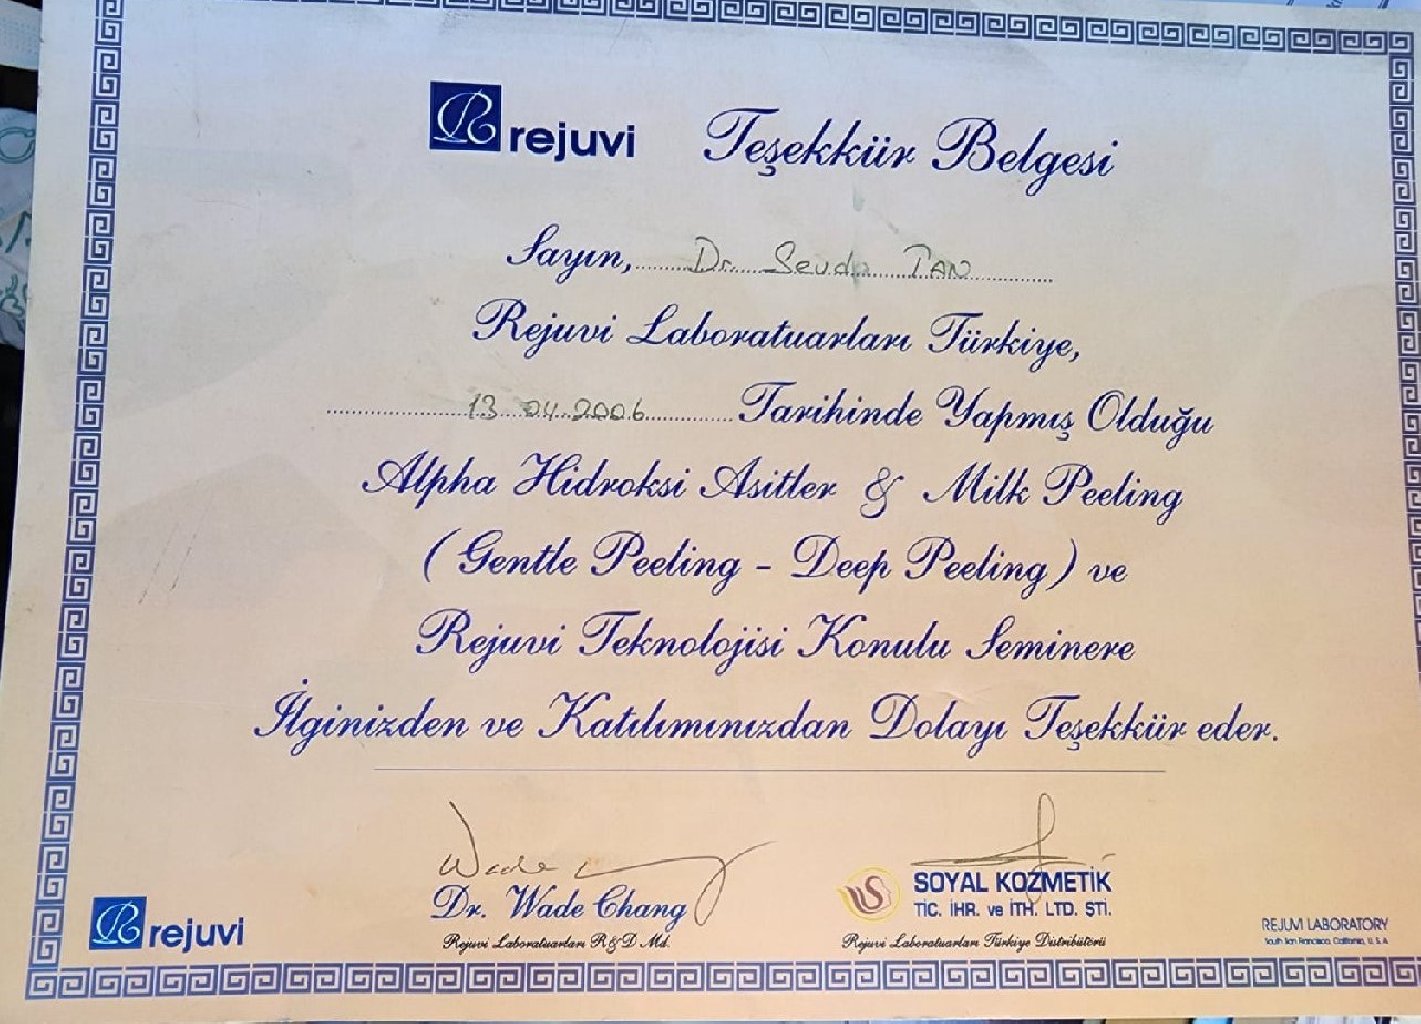 rejuvi Teşekkür Belgesi
Sayın, Dr. Sevda TAN
Rejuvi Laboratuarları Türkiye,
13 04 2006 Tarihinde Yapmış Olduğu
Alpha Hidroksi Asitler & Milk Peeling
( Gentle Peeling - Deep Peeling ) ve
Rejuvi Teknolojisi Konulu Seminere
İlginizden ve Katılımınızdan Dolayı Teşekkür eder.
Wade
Dr. Wade Chang
Rejuvi Laboratuarları R&D Md.
SOYAL KOZMETİK
TİC. İHR. ve İTH. LTD. ŞTİ.
Rejuvi Laboratuarları Türkiye Distribütörü
rejuvi
REJUVI LABORATORY
South San Francisco, California, U.S.A